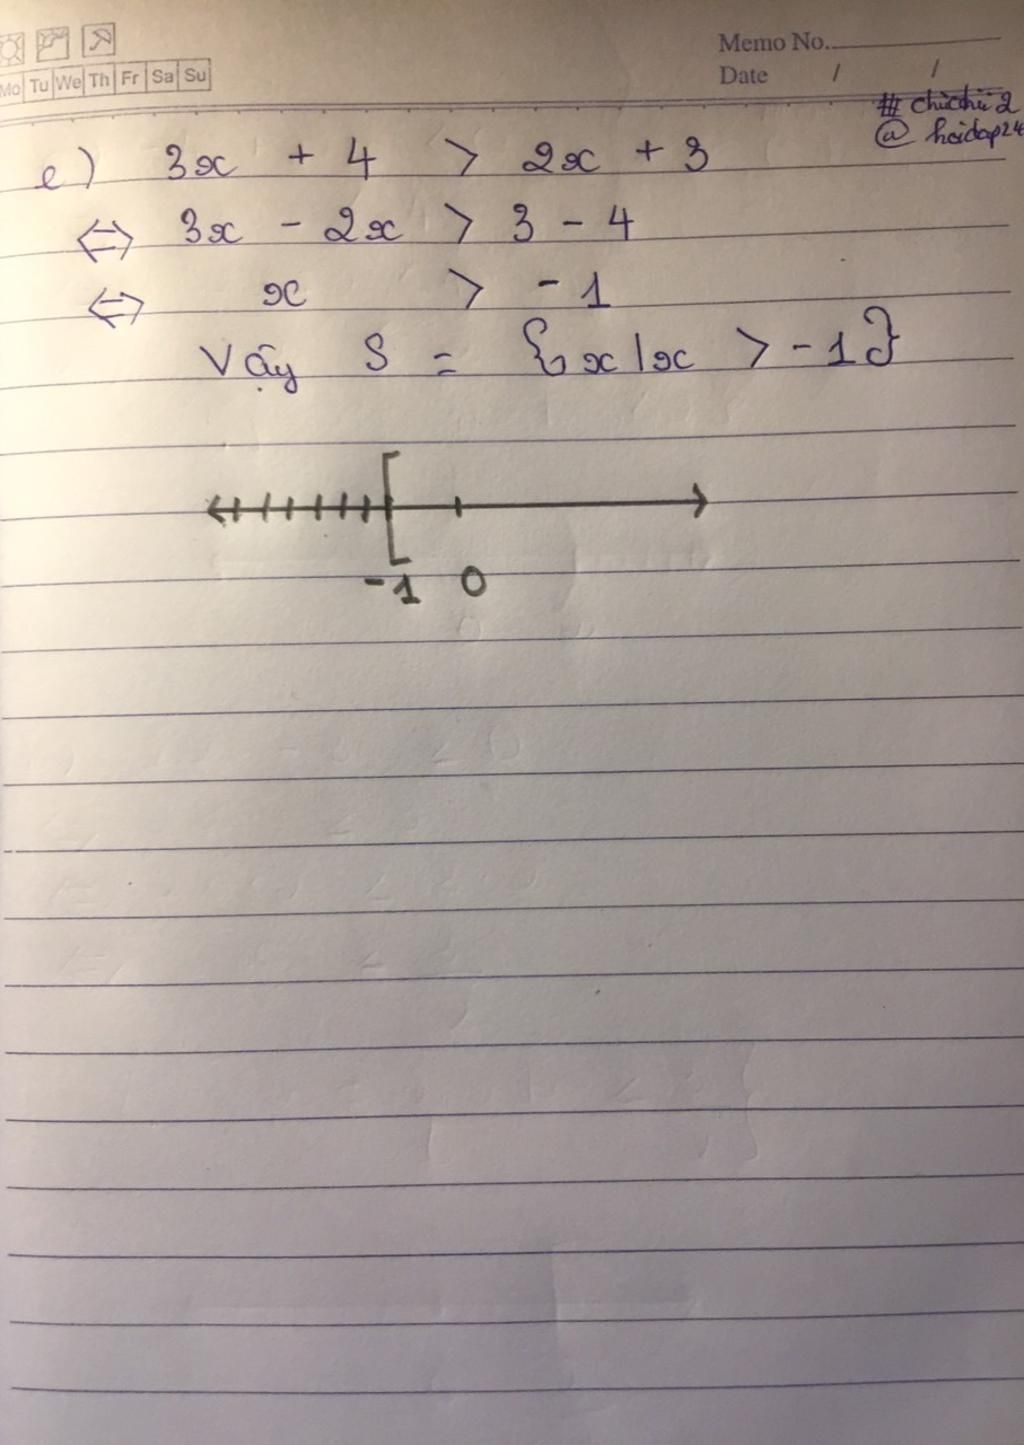 Memo No.
Mo Tu We Th Fr Sa Su
Date / /
# chiichii2
@ hoidap24
e) 3x + 4 > 2x + 3
⇔ 3x - 2x > 3 - 4
⇔ x > -1
Vậy S = {x | x > -1}
-1 0